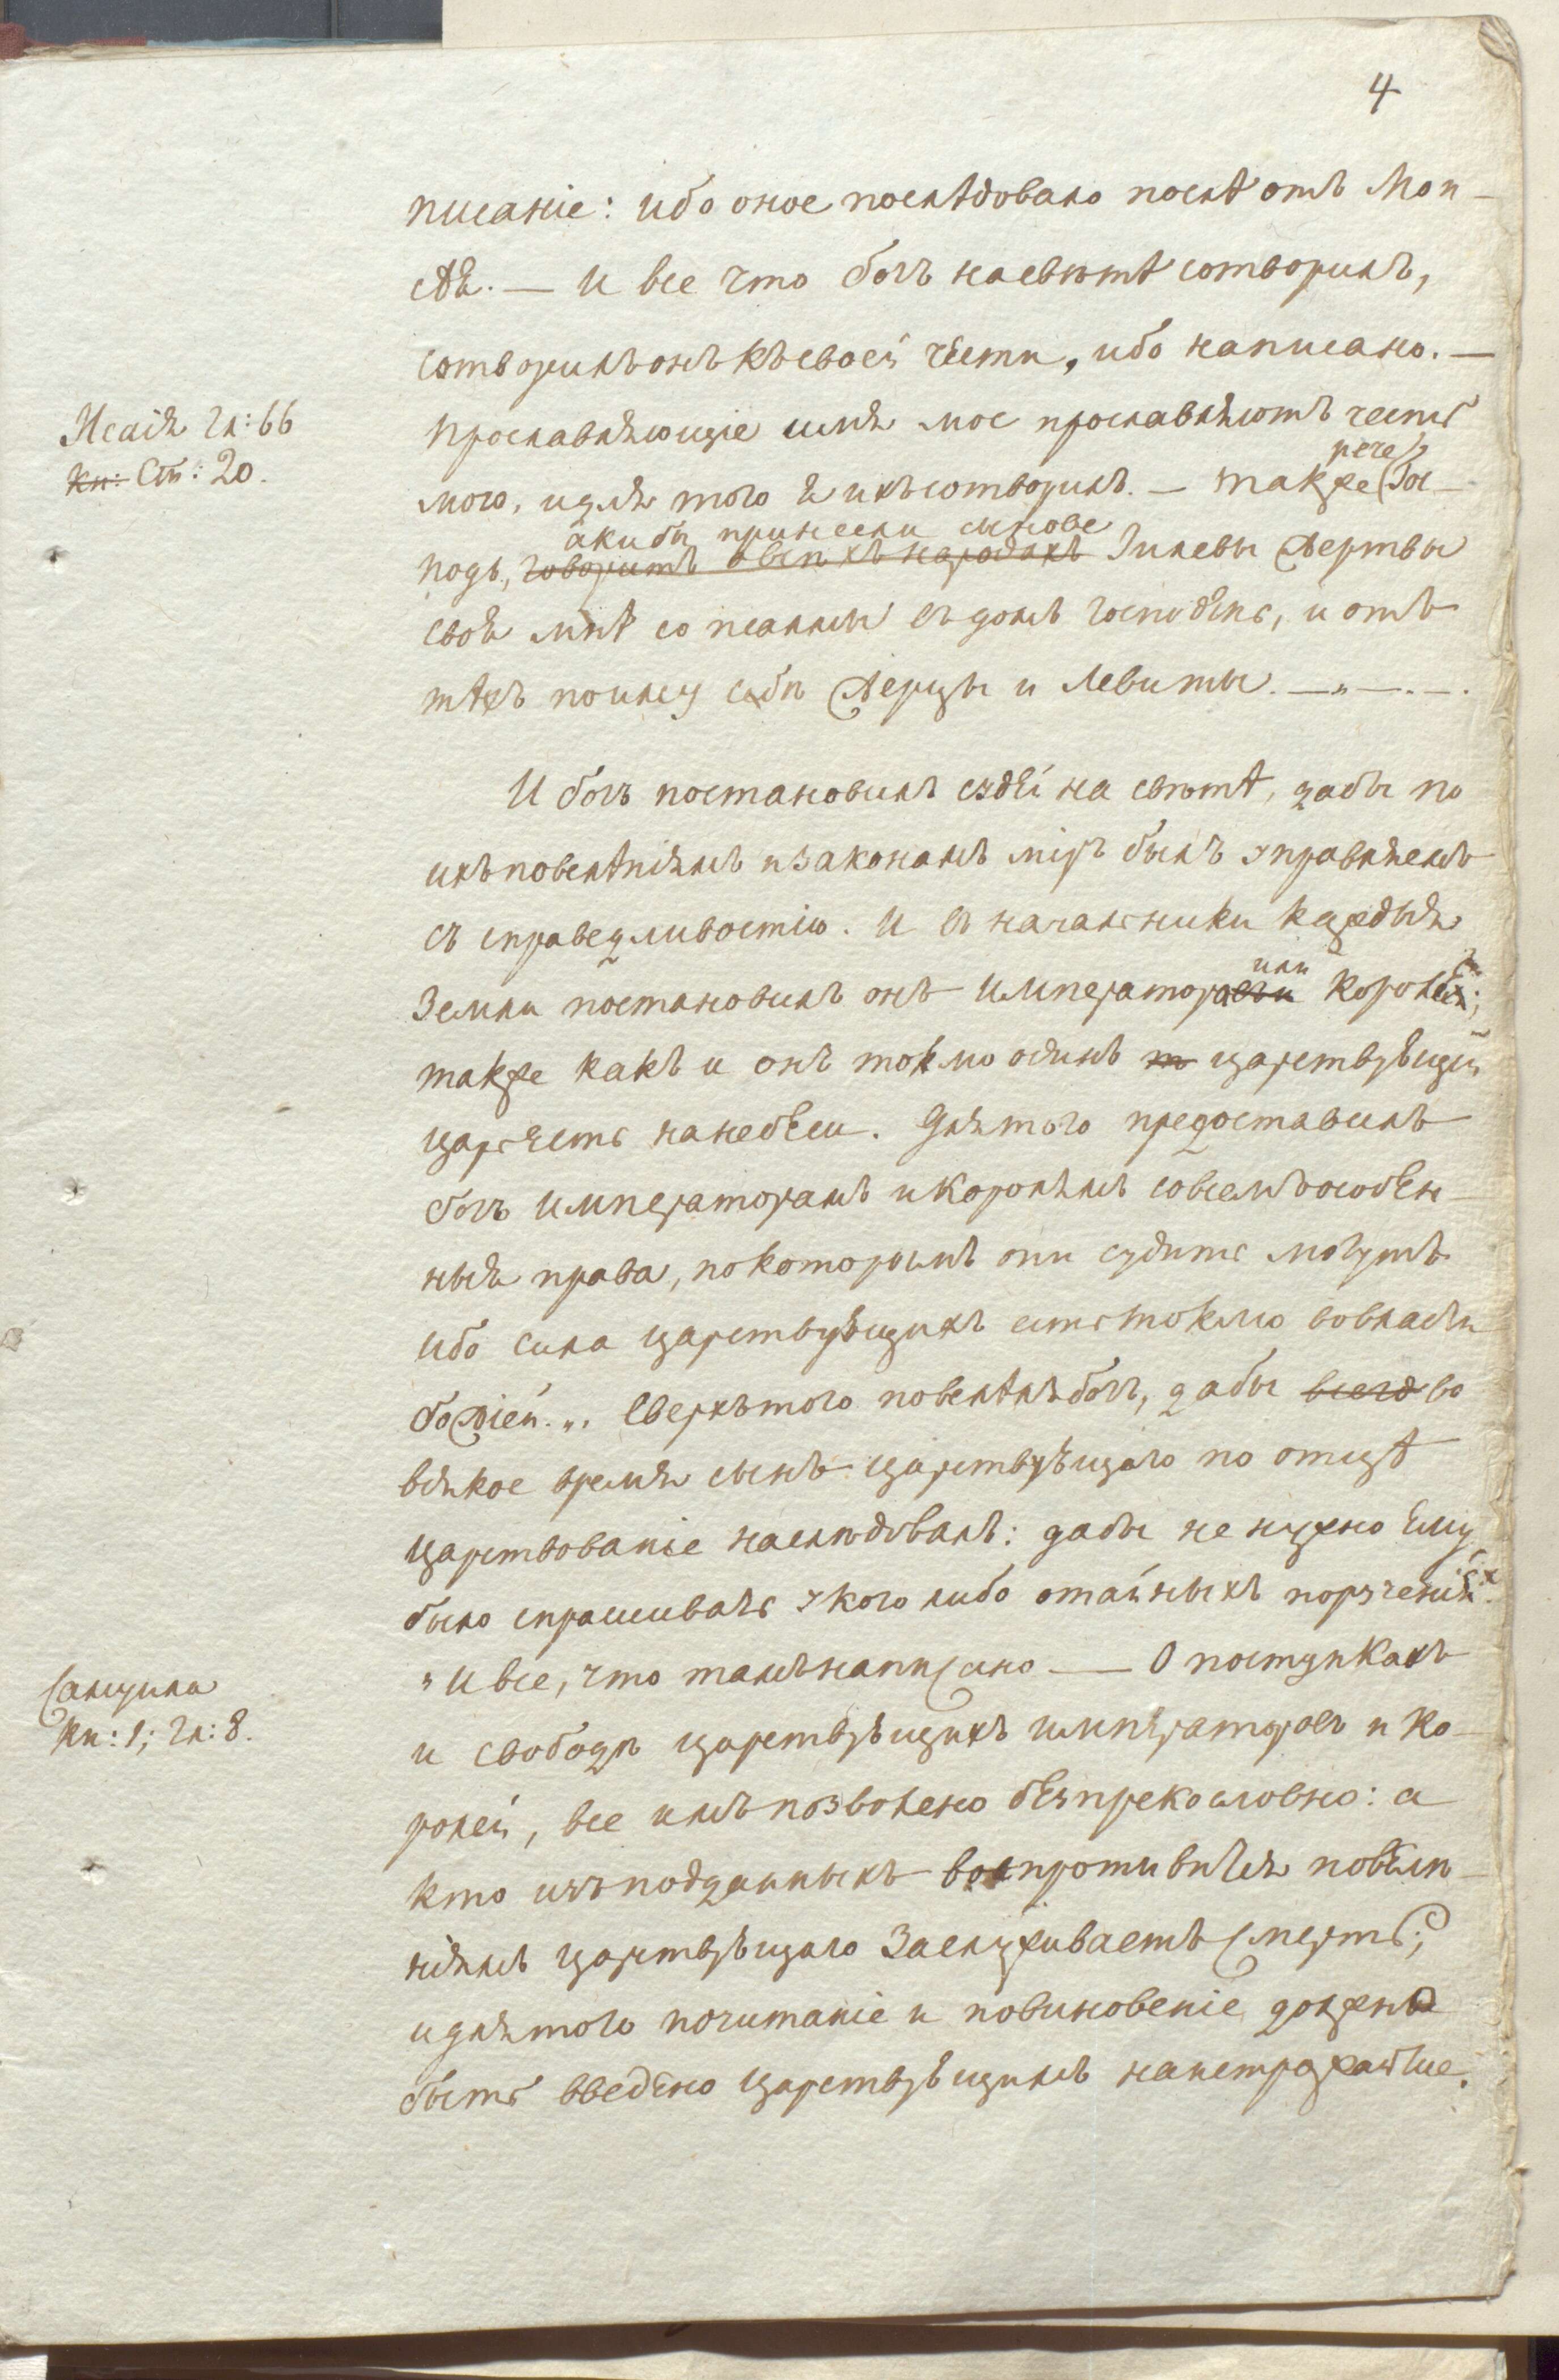 4
писаніе: ибо оное послѣдовало послѣ отъ Мои-
сѣя. — И все что богъ насвѣтѣ сотворилъ,
сотворилъ онъ къ своей чести, ибо написано. —
Исаія гл: 66
кн: Ст: 20.
прославляющіе имя мое прославляютъ честь
рече
мою, и для того я ихъ сотворилъ. — также Гос-
акибы принесли сынове
подь, говоритъ о всѣхъ народахъ Іилевы жертвы
своя мнѣ со псалмы въ домъ господень, и отъ
тѣхъ поиму себѣ жерцы и Левиты. — „ — . — .
И богъ постановилъ судей на свѣтѣ, дабы по
ихъ повелѣніямъ и законамъ міръ былъ управляемъ
съ справедливостію. И въ начальники каждыя
или
Земли постановилъ онъ императоровъ и королей;
также какъ и онъ токмо одинъ т царствующій
царь есть на небеси. Для того предоставилъ
богъ императорамъ и королямъ совсемъ особен-
ныя права, по которымъ они судить могутъ
ибо сила царствующихъ есть токмо во власти
божіей. „. Сверхъ того повелѣлъ богъ, дабы всегд во
всякое время сынъ царствующаго по отцѣ
царствованіе наслѣдовалъ: дабы не нужно ему
было спрашивать у кого либо отайныхъ порученіях
Самуила
кн: 1; гл: 8.
„ И все, что тамъ написано — О поступкахъ
и свободѣ царствующихъ императоровъ и ко-
ролей, все имъ позволено безпрекословно: а
кто изъ подданныхъ воспротивится повелѣ-
ніямъ царствующаго Заслуживаетъ смерть;
и для того почитаніе и повиновеніе должно
быть введено царствующимъ наистрожайше.